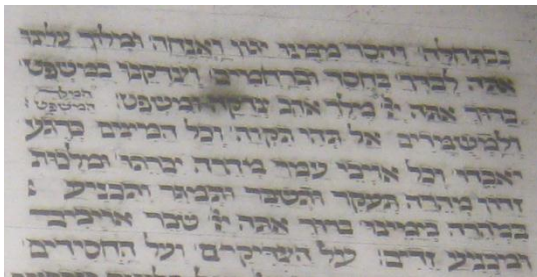 כבתחלה והסר מימנו יגון ואנחה ומלוך עלינו
אתה לבדך בחסד וברחמים וצדקנו במשפט
ברוך אתה יי מלך אהב צדקה ומשפט: המלך המשפט
ולמשמדים אל תהי תקוה וכל המינים כרגע
יאבדו וכל אויבי עמך מהרה יכרתו ומלכות
זדון מהרה תעקר ותשבר ותמגר ותכניע
במהרה בימינו ברוך אתה יי שבר אויבים
ומכניע זדים: על הצדיקים ועל החסידים